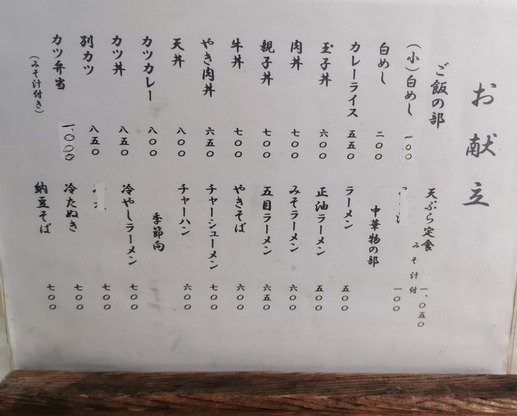 お献立
ご飯の部
(小)白めし 一〇〇
白めし 二〇〇
カレーライス 五五〇
玉子丼 六〇〇
肉丼 七〇〇
親子丼 七〇〇
牛丼 七〇〇
やき肉丼 六五〇
天丼 八〇〇
カツカレー 八〇〇
カツ丼 八五〇
別カツ 八五〇
カツ弁当 一、〇〇〇
(みそ汁付き)
天ぷら定食 一、〇五〇
みそ汁付
一〇〇
中華物の部
ラーメン 五〇〇
正油ラーメン 五〇〇
みそラーメン 六〇〇
五目ラーメン 六五〇
やきそば 六〇〇
チャーシューメン 七〇〇
チャーハン 六〇〇
季節向
冷やしラーメン 七〇〇
七〇〇
冷たぬき 七〇〇
納豆そば 七〇〇